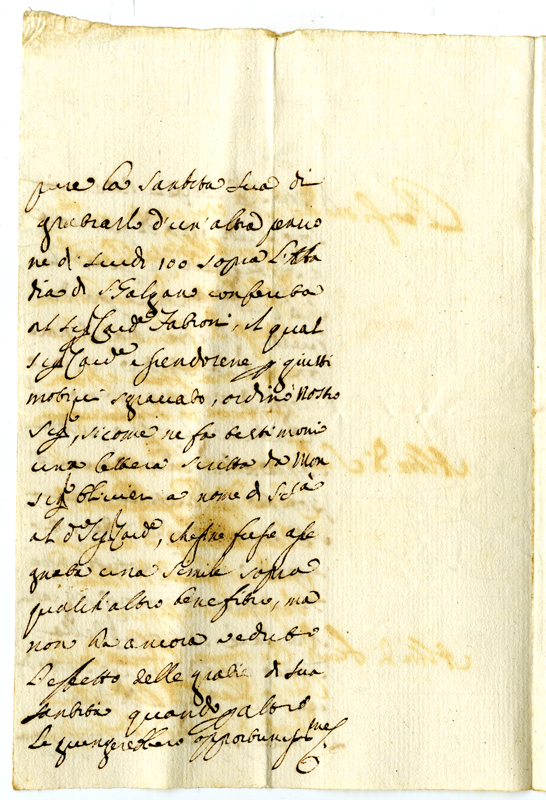 pure la Santità Sua di
gratiarlo d'un'altra pensio
ne di scudi 100 sopra l'Aba
dia di S. Galgano conferita
al Sig.r Card.e Fabroni, il qual
Sig.r Card.e essendosene p giusti
motivi sgravato, ordinò Nostro
Sig.re, sicome ne fa testimoni
una lettera scritta da Mon
sig.r Olivieri a nome di S. S.tà
al d.o Sig.r Card.e, che ne fusse asse
gnata una simile sopra
qualch'altro benefitio, ma
non ha ancora veduto
l'effetto delle gratie di Sua
Santità quando p altro
le giungerebbero opportuniss.me